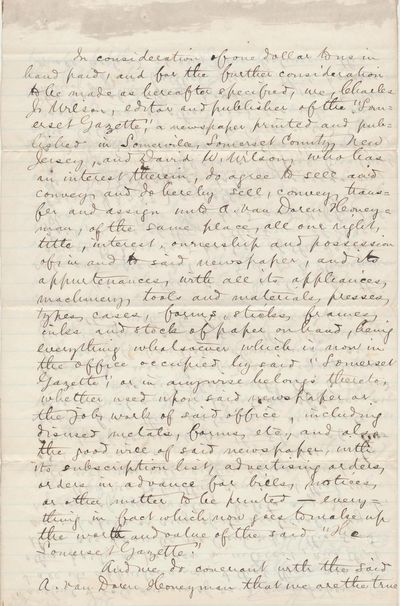 In consideration of one dollar to us in
hand paid, and for the further consideration
to be made as hereafter specified, we, Charles
Wilson, editor and publisher of the "Som=
erset Gazette," a newspaper printed and pub=
lished in Somerville, Somerset County, New
Jersey, and David W. Wilson, who has
an interest therein, do agree to sell and
convey, and do hereby sell, convey, trans=
fer and assign unto A. Van Doren Honey=
man, of the same place, all our right,
title, interest, ownership and possession
of, in and to said newspaper, and its
appurtenances, with all its appliances,
machinery, tools and materials, presses,
types, cases, forms, sticks, frames,
inks and stock of paper on hand, being
everything whatsoever which is now in
the office occupied by said "Somerset
Gazette," or in anywise belongs thereto,
whether used upon said newspaper or
the job work of said office, including
disused metals, forms, etc, and also
the good will of said newspaper, with
its subscription list, advertising orders,
orders in advance for bills, notices,
or other matter to be printed — every=
thing in fact which now goes to make up
the worth and value of the said "The
Somerset Gazette."
And we do covenant with the said
A. Van Doren Honeyman that we are the true